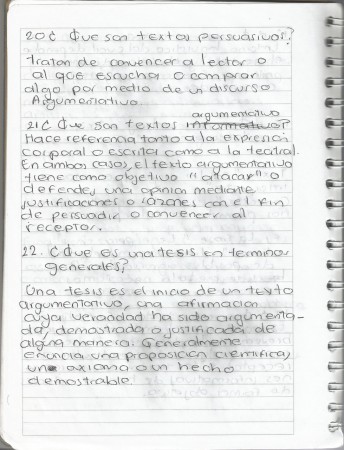 20¿ Que son textos persuasivos?
tratan de convencer a lector o
al que escucha o comprar
algo por medio de un discurso
Argumentativo.
argumentativo
21¿ Que son textos informativo?
Hace referencia tanto a la expresion
corporal o escrita como a la teatral.
En ambos casos, el texto argumentativo
tiene como objetivo "atacar" o
defender una opinion mediante
justificaciones o razones con el fin
de persuadir o convencer al
receptor.
22. ¿Que es una tesis en terminos
generales?
Una tesis es el inicio de un texto
argumentativo, una afirmacion
cuya veracidad ha sido argumenta-
da, demostrada o justificada de
alguna manera. Generalmente
enuncia una proposicion cientifica,
un axioma o un hecho
demostrable.